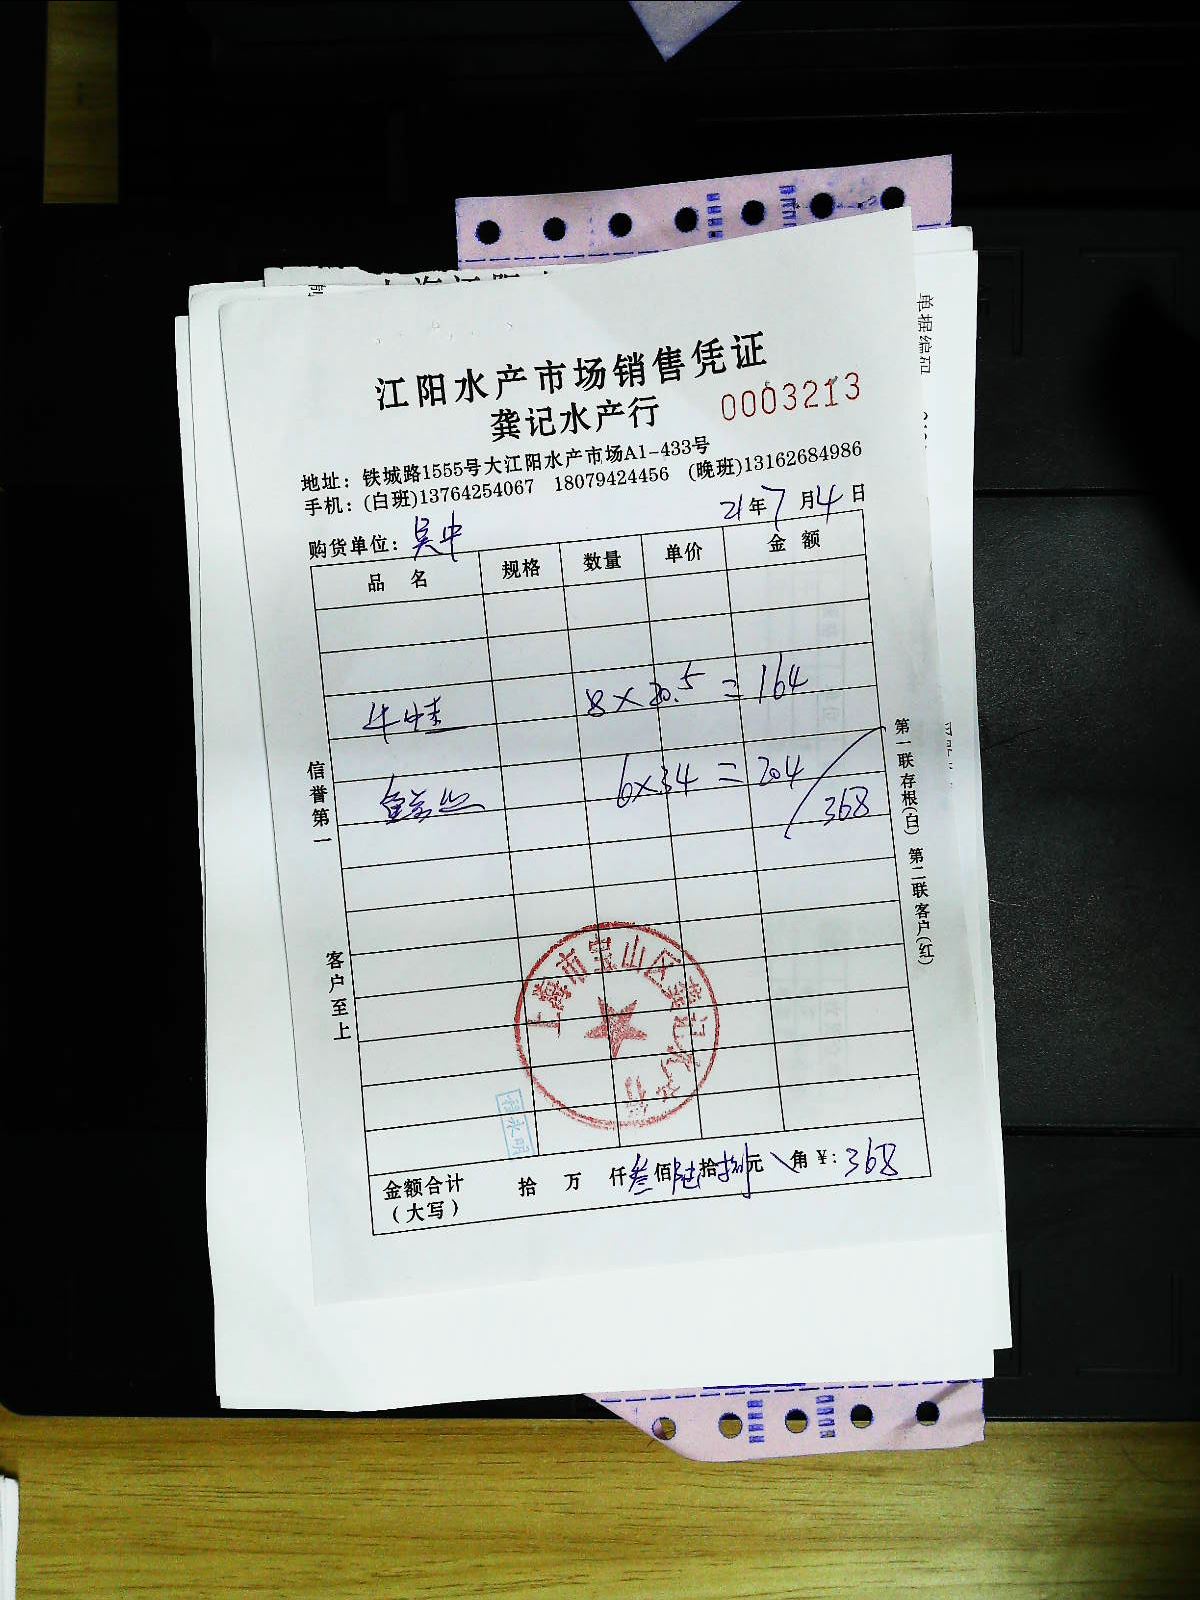 江阳水产市场销售凭证
龚记水产行 0003213
地址：铁城路1555号大江阳水产市场A1-433号
手机：(白班)13764254067 18079424456 (晚班)13162684986
21年7月4日
购货单位：吴中
品 名 规格 数量 单价 金 额
牛蛙 8×20.5=164
6×34=204
368
信誉第一
客户至上
第一联存根(白) 第二联客户(红)
上海市宝山区龚记水产行
金额合计 拾 万 仟叁佰陆拾捌元 角 ¥：368
（大写）
单据编码